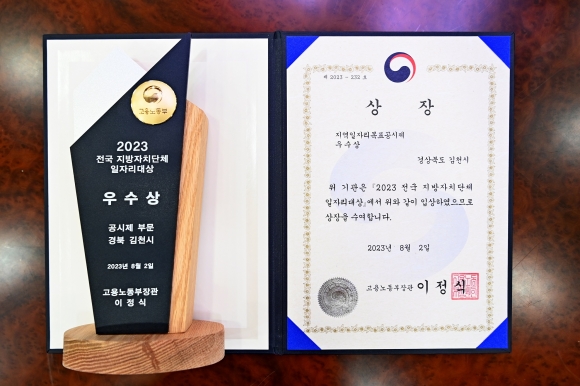 고용노동부
2023
전국 지방자치단체
일자리대상
우수상
공시제 부문
경북 김천시
2023년 8월 2일
고용노동부장관
이 정 식
제 2023 - 232 호
상 장
지역일자리목표공시제
우수상
경상북도 김천시
위 기관은 『2023 전국 지방자치단체
일자리대상』에서 위와 같이 입상하였으므로
상장을 수여합니다.
2023년 8월 2일
고용노동부장관 이 정 식